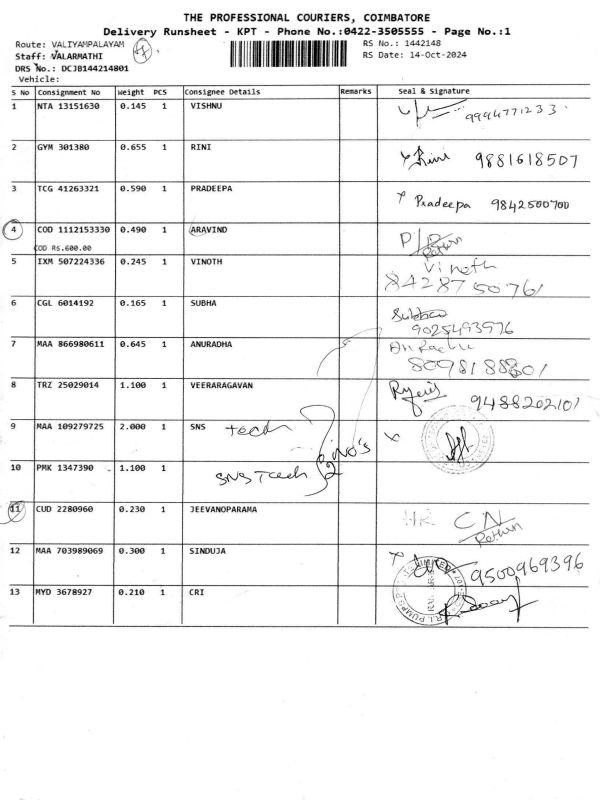 THE PROFESSIONAL COURIERS, COIMBATORE
Delivery Runsheet - KPT - Phone No.:0422-3505555 - Page No.:1
Route: VALIYAMPALAYAM
Staff: VALARMATHI
DRS No.: DCJB144214801
Vehicle:
RS No.: 1442148
RS Date: 14-Oct-2024
S No Consignment No Weight PCS Consignee Details Remarks Seal & Signature
1 NTA 13151630 0.145 1 VISHNU 9994771233
2 GYM 301380 0.655 1 RINI Rini 9881618507
3 TCG 41263321 0.590 1 PRADEEPA Pradeepa 9842500700
4 COD 1112153330 0.490 1 ARAVIND
COD RS.600.00 Return
5 IXM 507224336 0.245 1 VINOTH Vinoth
8428750761
6 CGL 6014192 0.165 1 SUBHA
9025493976
7 MAA 866980611 0.645 1 ANURADHA
8 TRZ 25029014 1.100 1 VEERARAGAVAN 9488202101
9 MAA 109279725 2.000 1 SNS Tech
2 No's
10 PMK 1347390 1.100 1 SNS Tech
11 CUD 2280960 0.230 1 JEEVANOPARAMA CN
Return
12 MAA 703989069 0.300 1 SINDUJA 9500969396
13 MYD 3678927 0.210 1 CRI